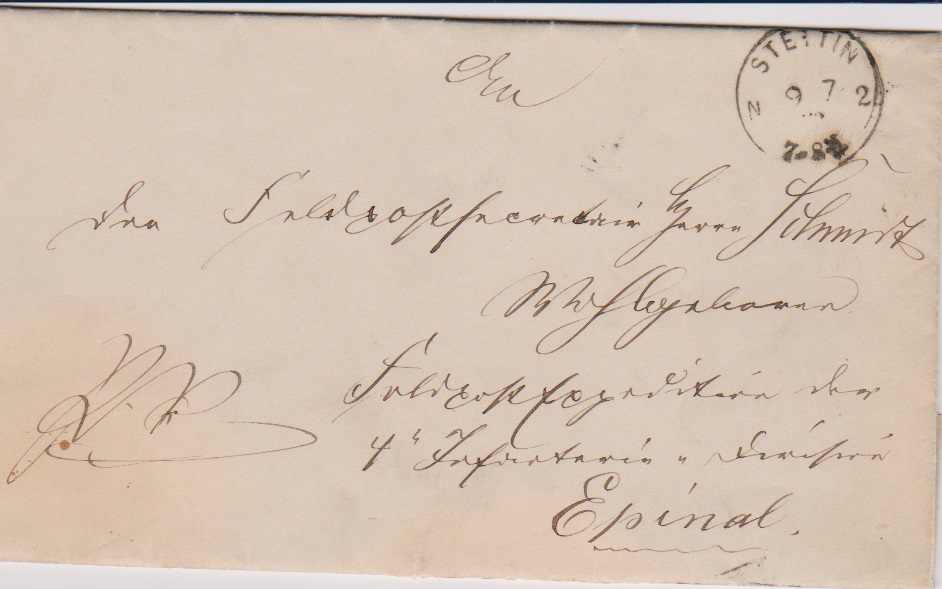 STETTIN
9 7 2
N
7-8
An
den Feldpostsecretair Herrn Schmidt
Wohlgeboren
Feldpost Expedition der
4n Infanterie - Division
Epinal.